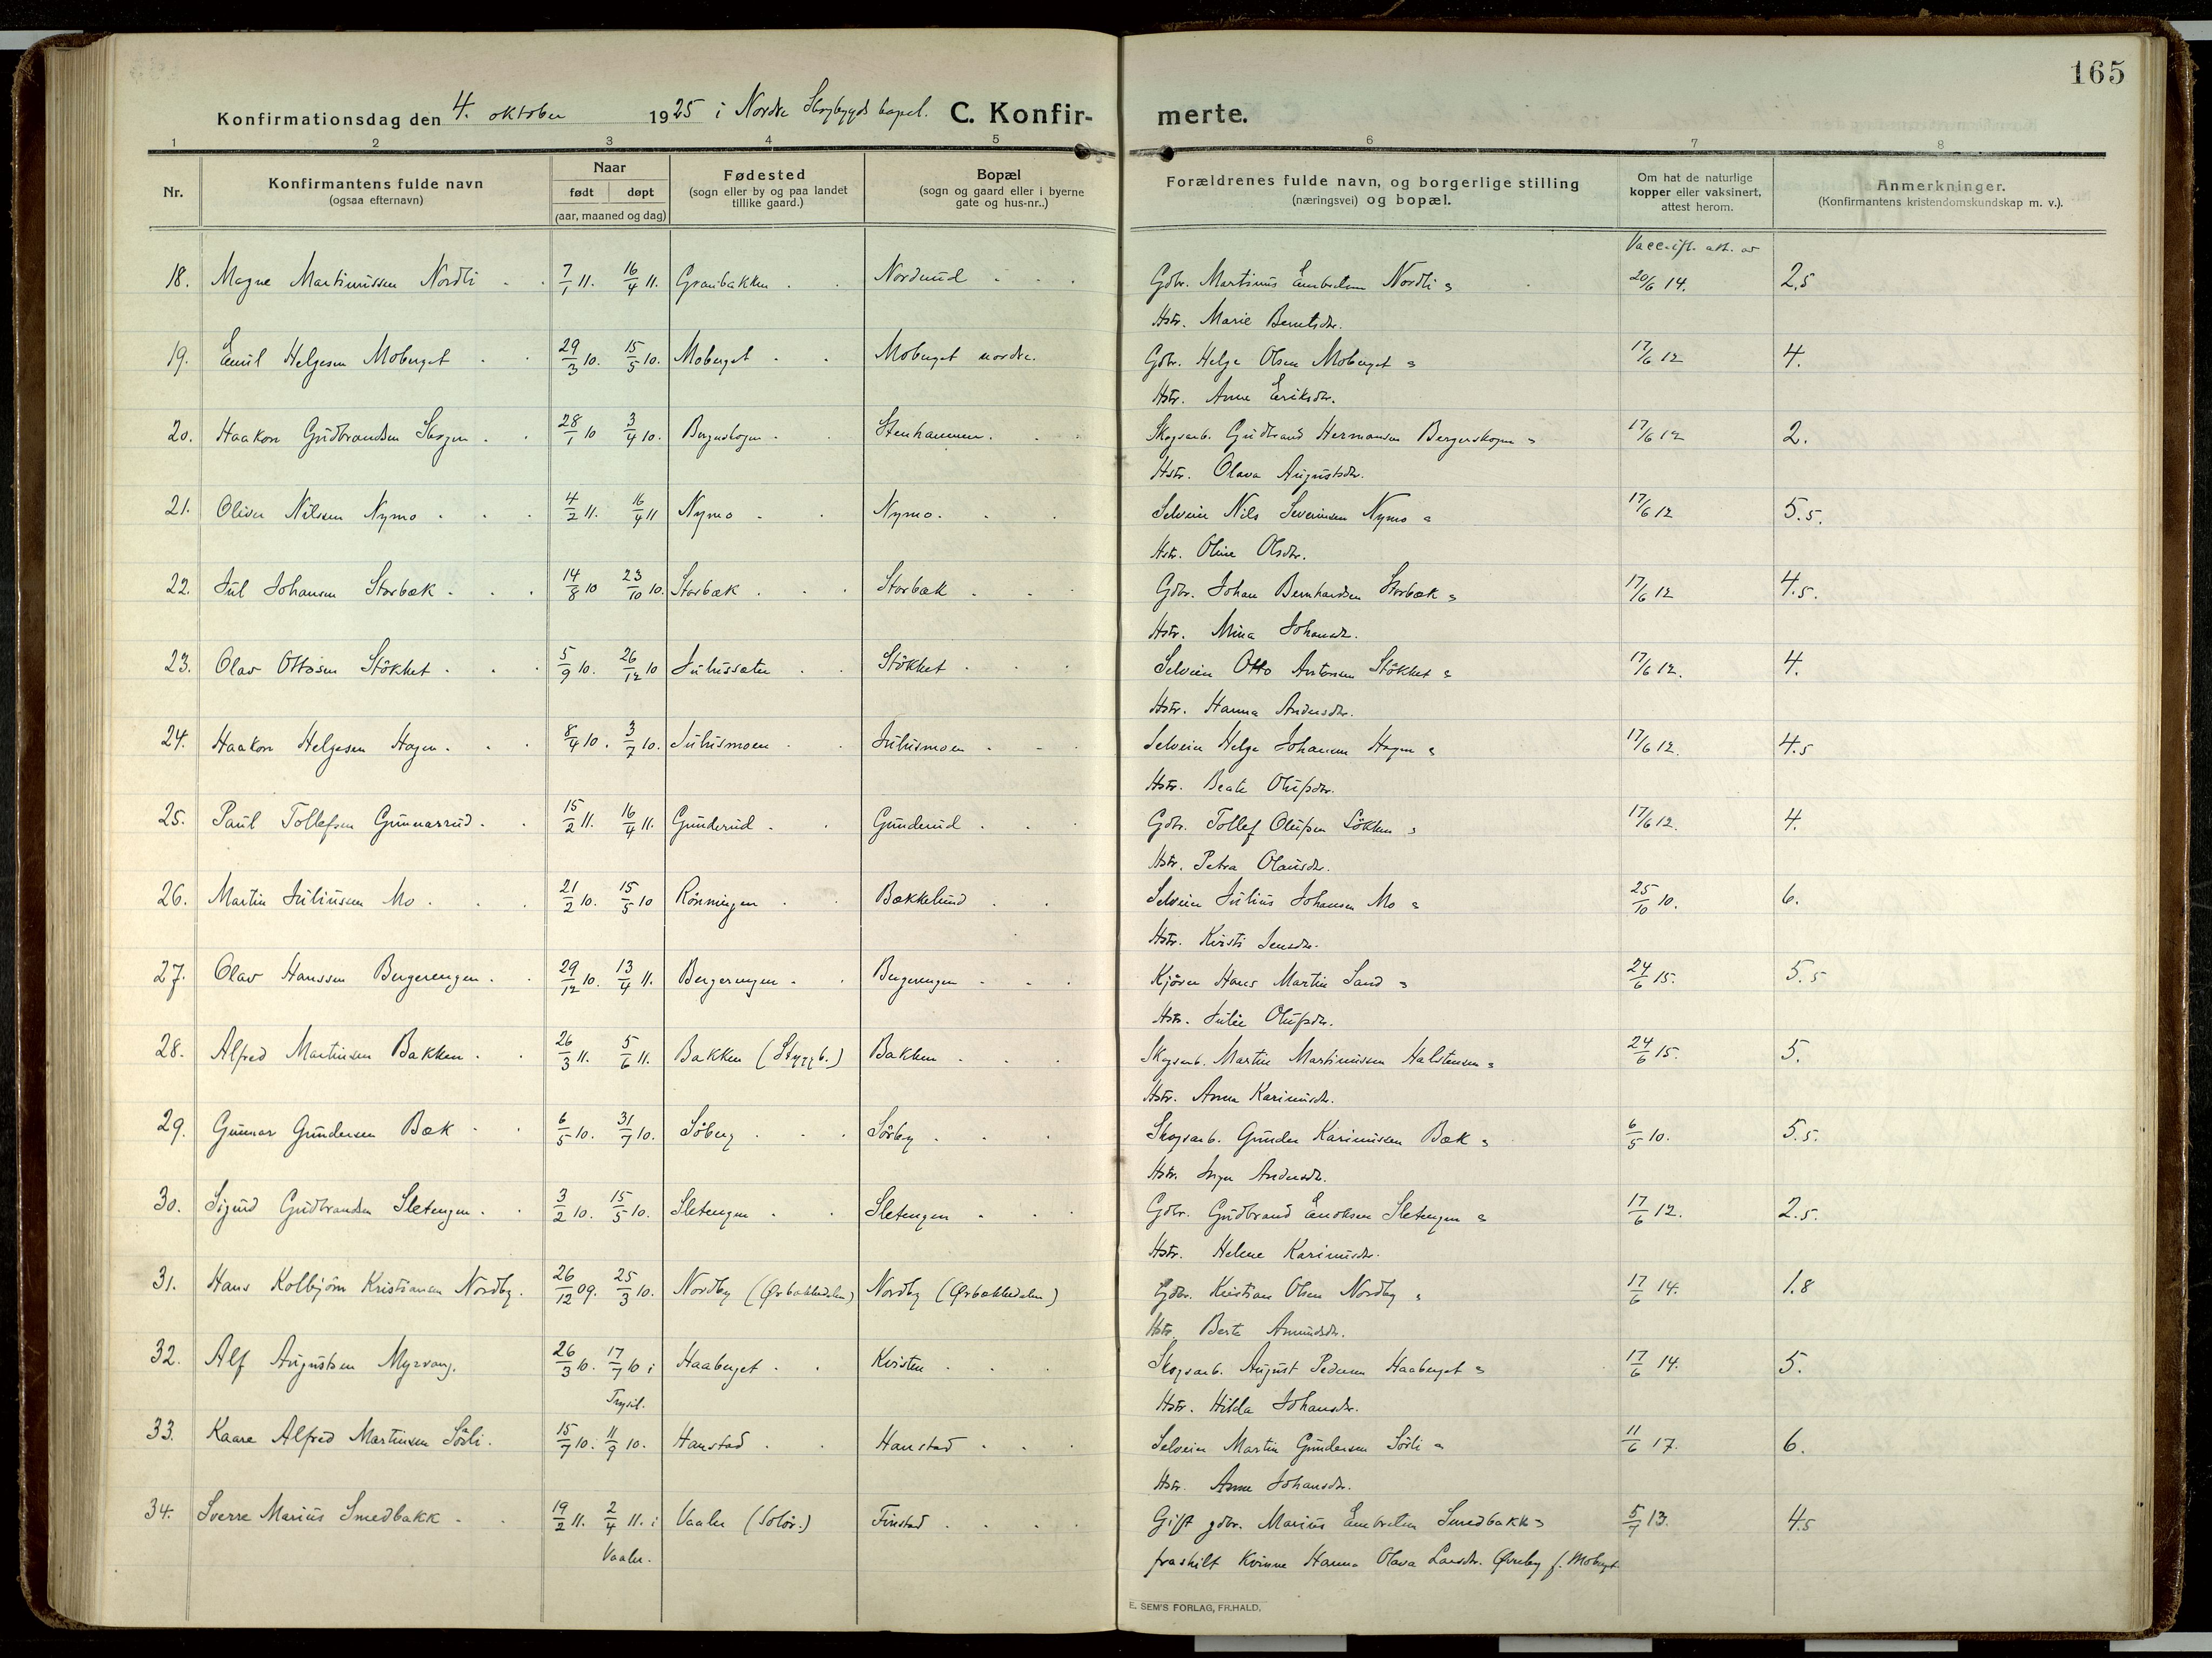 165
Konfirmationsdag den 4. oktober 1925 i Nordre Skogbygds kapel. C. Konfir- merte.
1 2 3 4 5 6 7 8
Nr.
Konfirmantens fulde navn
(ogsaa efternavn)
Naar
født døpt
(aar, maaned og dag)
Fødested
(sogn eller by og paa landet
tillike gaard.)
Bopæl
(sogn og gaard eller i byerne
gate og hus-nr..)
Forældrenes fulde navn, og borgerlige stilling
(næringsvei) og bopæl.
Om hat de naturlige
kopper eller vaksinert,
attest herom.
Anmerkninger.
(Konfirmantens kristendomskundskap m. v.).
Vacc. ifl. att. av
18. Magne Martinussen Nordli 7/1 11. 16/4 11. Granbakken Nordlund Gdbr. Martinus Embretsen Nordli 20/6 14. 2.5
Hstr. Marie Berntsdtr.
19. Emil Helgesen Moberget 29/3 10. 15/5 10. Moberget Moberget nordre. Gdbr. Helge Olsen Moberget 17/6 12 4.
Hstr. Anne Eriksdtr.
20. Haakon Gudbrandsen Skogen 28/1 10 3/4 10. Bergerskogen Stenhammer. Skogsarb. Gudbrand Hermansen Bergerskogen 17/6 12 2.
Hstr. Olava Augustsdtr.
21. Oliver Nilssen Nymo 4/2 11. 16/4 11 Nymo Nymo. Selveier Nils Severinsen Nymo 17/6 12 5.5.
Hstr. Oline Olsdtr.
22. Jul Johansen Storbæk 14/8 10 23/10 10. Storbæk Storbæk Gdbr. Johan Bernhardsen Storbæk 17/6 12 4.5.
Hstr. Mina Johansdtr.
23. Olav Ottosen Stökket 5/9 10. 26/12 10 Juliussæter Stökket Selveier Otto Antonsen Stökket 17/6 12. 4.
Hstr. Hanna Andersdtr.
24. Haakon Helgesen Hagen 8/4 10. 3/7 10. Juliusmoen Juliusmoen Selveier Helge Johansen Hagen 17/6 12. 4.5
Hstr. Beate Olufsdtr.
25. Paul Tollefsen Gunnarrud 15/2 11. 16/4 11. Gunderud Gunderud Gdbr. Tollef Olufsen Løkken 17/6 12. 4.
Hstr. Petra Olausdtr.
26. Martin Juliussen Mo 21/2 10. 15/5 10 Rönningen Bækkelund Selveier Julius Johansen Mo 25/10 10. 6.
Hstr. Kristi Jensdtr.
27. Olav Hanssen Bergerengen 29/12 10. 13/4 11. Bergerengen Bergerengen Kjörer Hans Martin Sand 24/6 15. 5.5
Hstr. Julie Olufsdtr.
28. Alfred Martinsen Bakken 26/3 11. 5/6 11. Bakken (Styggb.) Bakken Skogsarb. Martin Martinussen Halstensen 24/6 15. 5.
Hstr. Anna Karinusdtr.
29. Gunnar Gundersen Bæk 6/5 10. 31/7 10. Söberg Sörby Skogsarb. Gunder Karinussen Bæk 6/5 10. 5.5.
Hstr. Inga Andersdtr.
30. Sigurd Gudbrandsen Sletengen 3/2 10. 15/5 10. Sletengen Sletengen Gdbr. Gudbrand Enoksen Sletengen 17/6 12. 2.5.
Hstr. Helene Karinusdtr.
31. Hans Kolbjörn Kristiansen Nordby. 26/12 09. 25/3 10. Nordby (Ørbækkedalen) Nordby (Ørbækkedalen) Gdbr. Kristian Olsen Nordby 17/6 14. 1.8
Hstr. Berte Amundsdtr.
32. Alf Augustsen Myrvang. 26/3 10. 17/7 10 i Haaberget Kvisten Skogsarb. August Pedersen Haaberget 17/6 14. 5.
Trysil. Hstr. Hilda Johansdtr.
33. Kaare Alfred Martinsen Sörli. 15/7 10. 11/9 10. Hanstad Hanstad Selveier Martin Gundersen Sörli 11/6 17. 6.
Hstr. Anne Johansdtr.
34. Sverre Marius Smedbakk 19/2 11. 2/4 11. i Vaaler (Solør.) Finstad Gift gdbr. Marius Embretsen Smedbakk 5/7 13. 4.5
Vaaler. fraskilt kvinne Hanna Olava Larsdtr. Øvreby f. Moberget.
E. SEM'S FORLAG, FR.HALD.